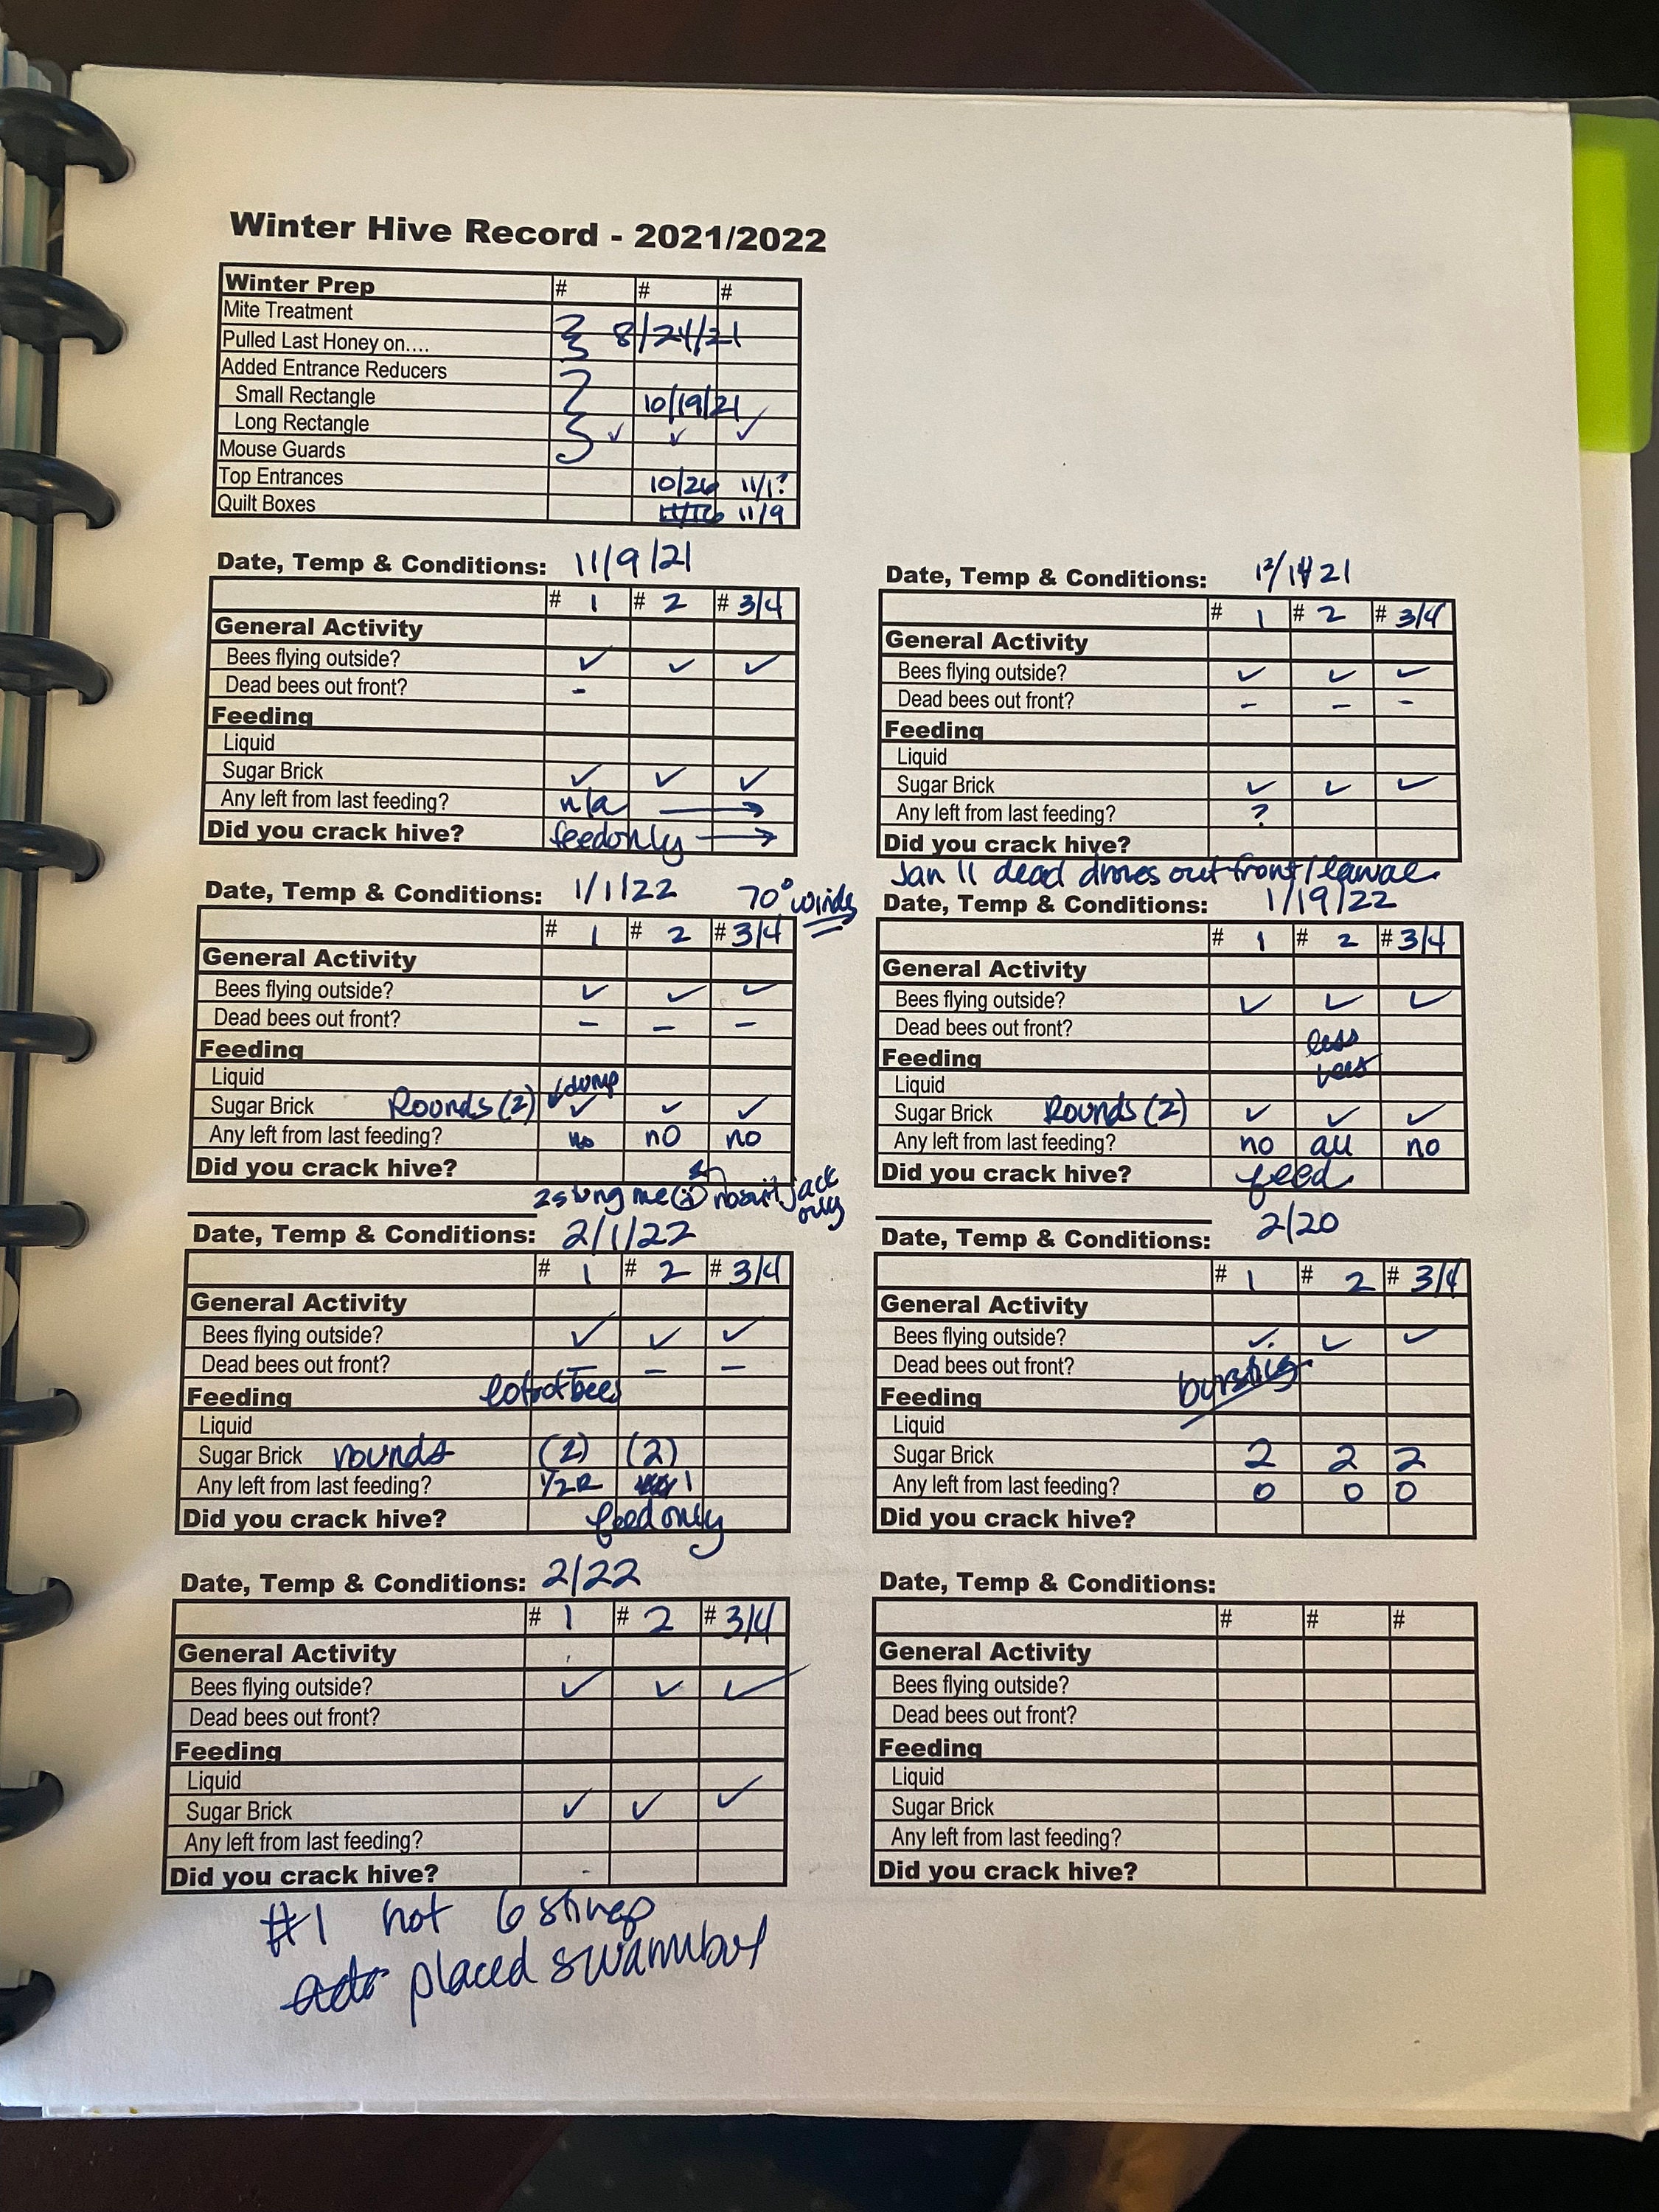 Winter Hive Record - 2021/2022
Winter Prep # # #
Mite Treatment
Pulled Last Honey on.... 8/24/21
Added Entrance Reducers
Small Rectangle 10/19/21
Long Rectangle ✓ ✓ ✓
Mouse Guards
Top Entrances 10/26 11/1?
Quilt Boxes 11/9
Date, Temp & Conditions: 11/9/21
# 1 # 2 # 3/4
General Activity
Bees flying outside? ✓ ✓ ✓
Dead bees out front? -
Feeding
Liquid
Sugar Brick ✓ ✓ ✓
Any left from last feeding? n/a →
Did you crack hive? feed only →
Date, Temp & Conditions: 12/14/21
# 1 # 2 # 3/4
General Activity
Bees flying outside? ✓ ✓ ✓
Dead bees out front? - - -
Feeding
Liquid
Sugar Brick ✓ ✓ ✓
Any left from last feeding? ?
Did you crack hive?
Jan 11 dead drones out front/larvae
Date, Temp & Conditions: 1/1/22 70° winds
# 1 # 2 # 3/4
General Activity
Bees flying outside? ✓ ✓ ✓
Dead bees out front? - - -
Feeding
Liquid
Sugar Brick Rounds (2) ✓ ✓ ✓
Any left from last feeding? no no no
Did you crack hive?
2 stung me no suit jack only
Date, Temp & Conditions: 1/19/22
# 1 # 2 # 3/4
General Activity
Bees flying outside? ✓ ✓ ✓
Dead bees out front?
less bees
Feeding
Liquid
Sugar Brick Rounds (2) ✓ ✓ ✓
Any left from last feeding? no all no
Did you crack hive? feed
Date, Temp & Conditions: 2/1/22
# 1 # 2 # 3/4
General Activity
Bees flying outside? ✓ ✓ ✓
Dead bees out front? - - -
Feeding lot of bees
Liquid
Sugar Brick rounds (2) (2)
Any left from last feeding? 1/2 R 1
Did you crack hive? feed only
Date, Temp & Conditions: 2/20
# 1 # 2 # 3/4
General Activity
Bees flying outside? ✓ ✓ ✓
Dead bees out front?
Feeding bursting
Liquid
Sugar Brick 2 2 2
Any left from last feeding? 0 0 0
Did you crack hive?
Date, Temp & Conditions: 2/22
# 1 # 2 # 3/4
General Activity
Bees flying outside? ✓ ✓ ✓
Dead bees out front?
Feeding
Liquid
Sugar Brick ✓ ✓ ✓
Any left from last feeding?
Did you crack hive? -
#1 hot 6 stings
placed swarm box
Date, Temp & Conditions:
# # #
General Activity
Bees flying outside?
Dead bees out front?
Feeding
Liquid
Sugar Brick
Any left from last feeding?
Did you crack hive?